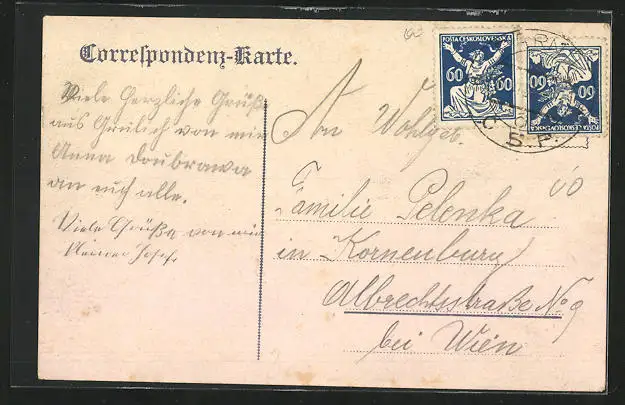 Correspondenz-Karte.
POŠTA ČESKOSLOVENSKÁ
60 60
POŠTA ČESKOSLOVENSKÁ
60 60
Viele herzliche Grüße
aus von mir
Anna Doubrawa
an euch alle.
Viele Grüße von mir
kleiner Josef.
An Wohlgeb.
Familie Pelenka
in Kornenburg
Albrechtsstraße No 9
bei Wien